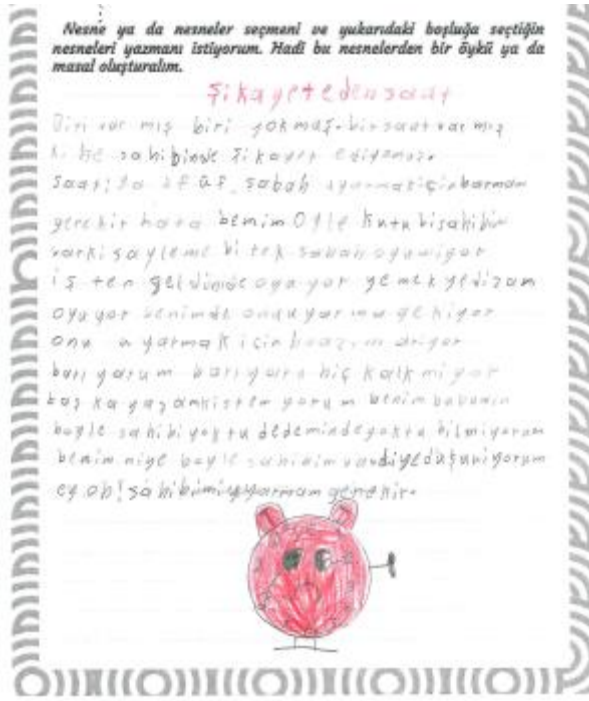 Nesne ya da nesneler seçmeni ve yukarıdaki boşluğa seçtiğin
nesneleri yazmanı istiyorum. Hadi bu nesnelerden bir öykü ya da
masal oluşturalım.
Şikayet eden saat
Biri var mış biri yokmuş. bir saat var mış
sahibinde şikayet ediyomuş.
Saat; üf, sabah uyarmak için barmam
gerekir hata benim öyle kutu bi sahibim
var ki söyleme bi tek sabah oyuyor
iş ten geldimde oyuyor yemek yedi
oyuyor benimde onu
onu uyarmak için
barıyorum barıyoru hiç kalkmıyor
baş ka istem yorum benim babamın
böyle sahibi yoktu dedemin de yoktu bilmiyorum
benim niye böyle sahibim var diye düşünüyorum
ey oh! sahibimi uyarmam gerekir.